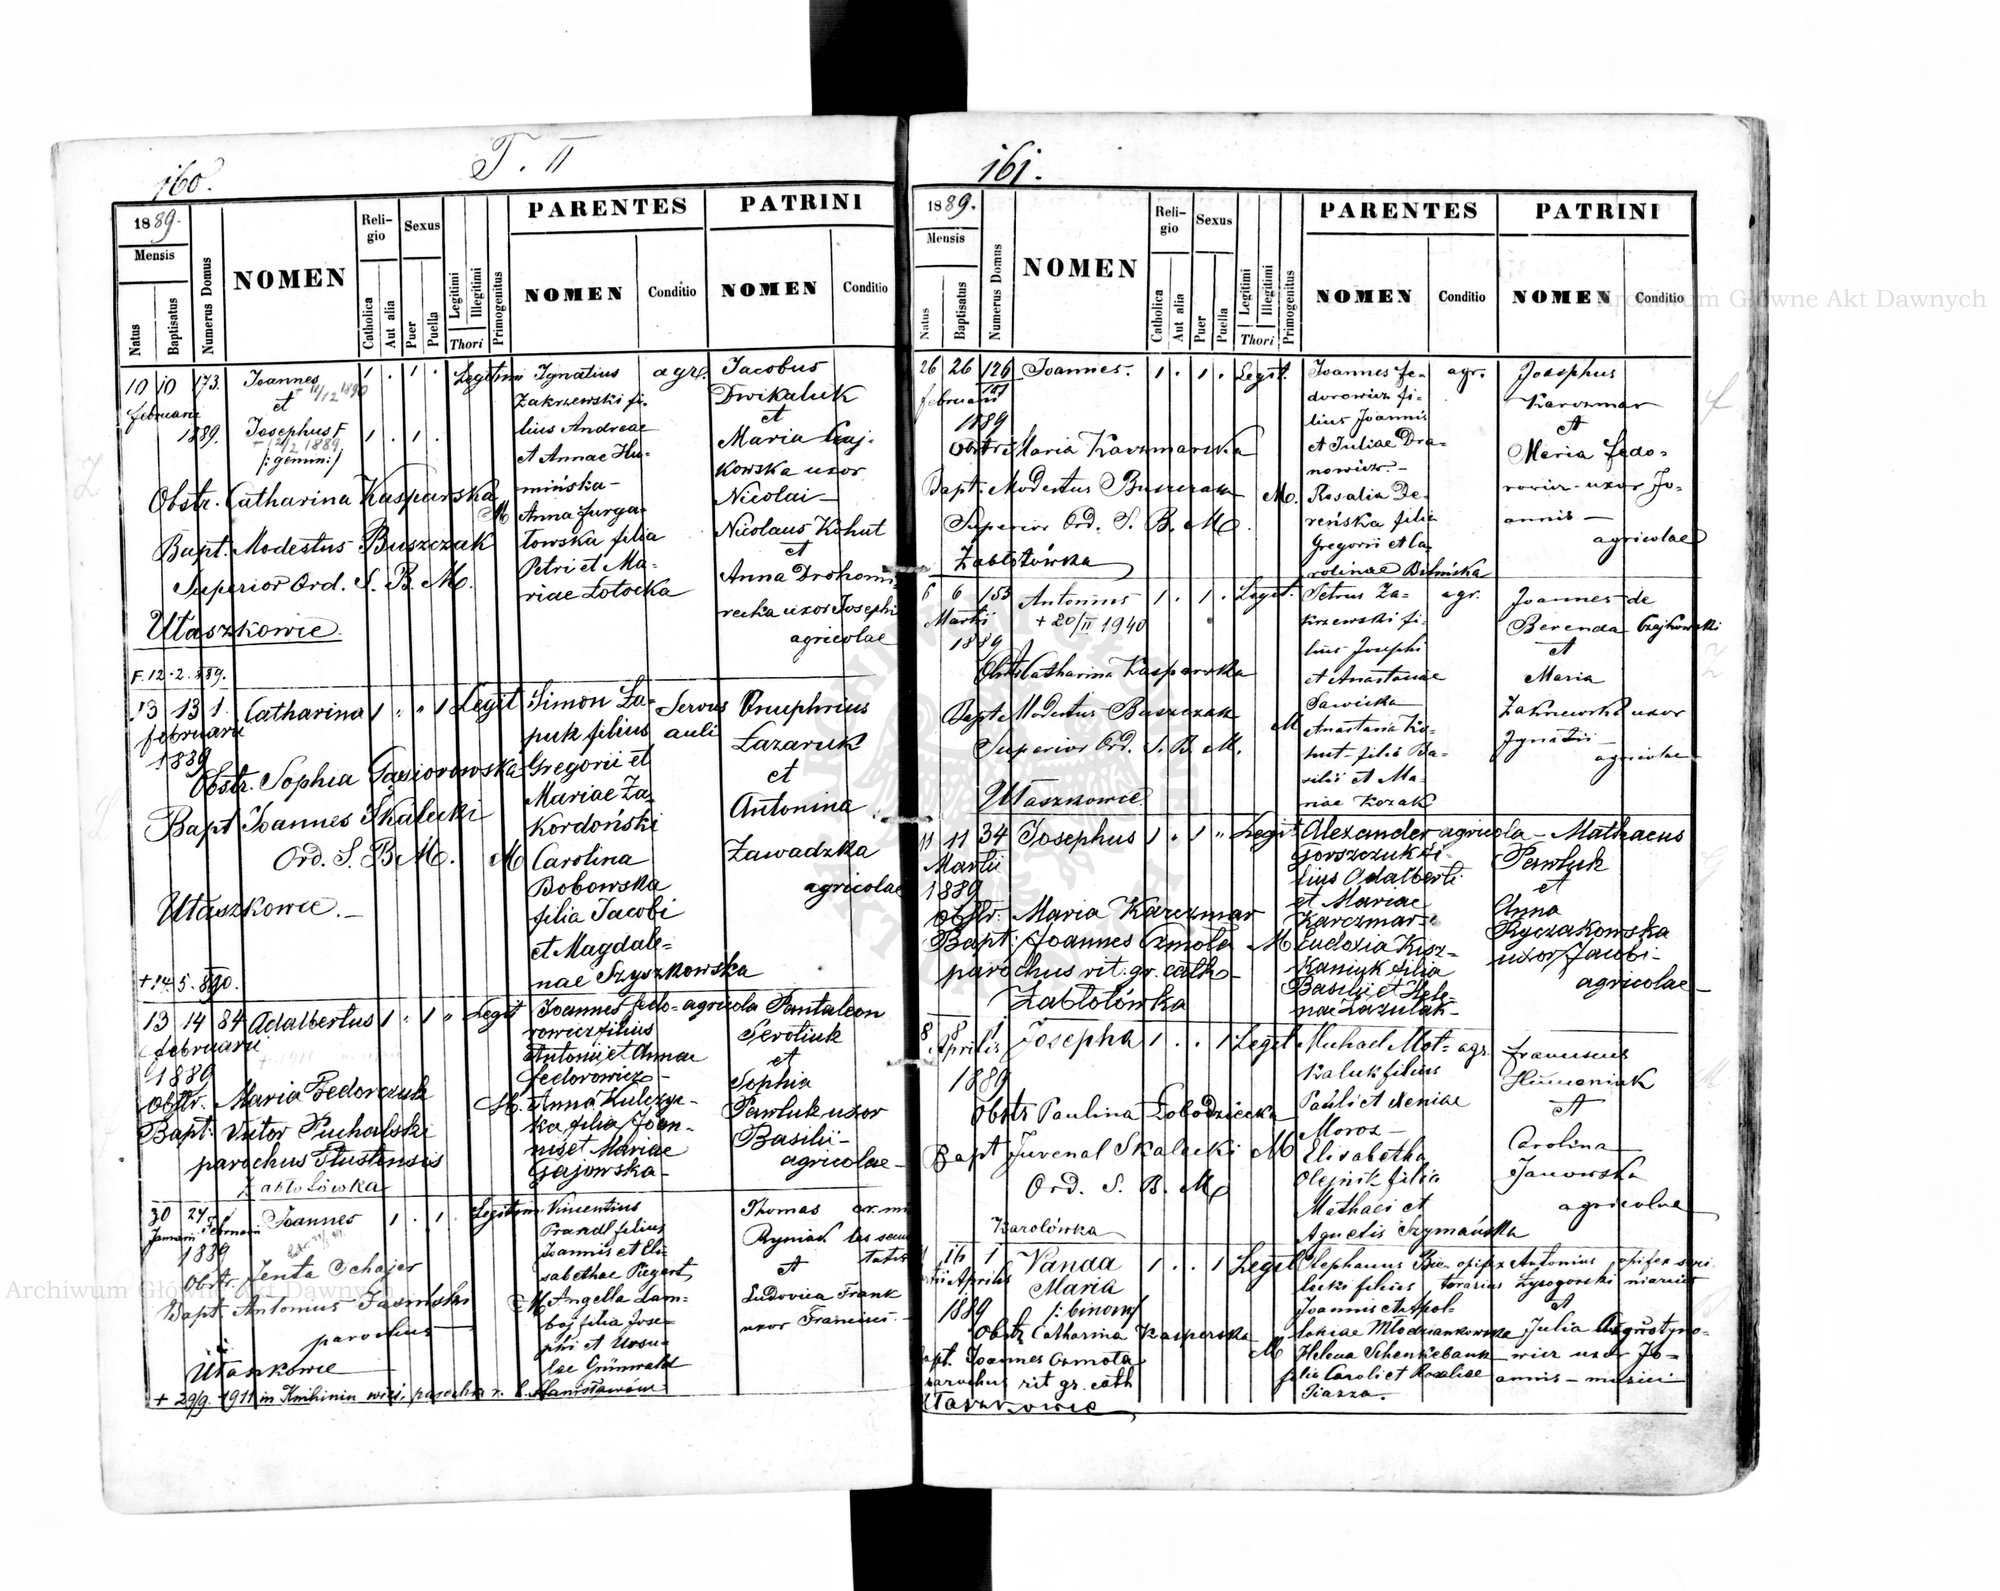 160.
T. II
1889.
Mensis
Natus
Baptisatus
Numerus Domus
NOMEN
Religio
Catholica
Aut alia
Sexus
Puer
Puella
Legitimi
Illegitimi
Thori
Primogenitus
PARENTES
NOMEN
Conditio
PATRINI
NOMEN
Conditio
10 10 173. Joannes 1 . 1 . Legitimi Ignatius agr. Jacobus
Februarii et Zakrzewski fi- Dwikaluk
1889. Josephus F 1 . 1 . lius Andreae et
/:gemin:/ et Annae Hu- Maria
mińska - kowska uxor
Obstr. Catharina Kasparska Nicolai -
M Anna Jurga- Nicolaus Kohut
Bapt. Modestus Buszczak towska filia et
Superior Ord. S. B. M. Petri et Ma- Anna
riae Łotocka recka uxor Josephi
Utaszkowce. agricolae
F. 12.2.889.
13 13 1. Catharina 1 " " 1 Legit Simon Ła- Servus Onuphrius
Februarii puk filius auli Łazaruk
1889 Gregorii et et
Obstr. Sophia Gąsiorowska Mariae Za- Antonina
Kordoński
Bapt Joannes Skalecki Zawadzka
Ord. S. B M. M Carolina agricolae
Bobowska
Utaszkowce. - filia Jacobi
et Magdale-
nae Szyszkowska
+ 14.5.890.
13 14 84 Adalbertus 1 " 1 " Legit Joannes Fedo- agricola Pantaleon
Februarii rowicz filius
1889 Antonii et Annae et
Fedorowicz - Sophia
Obstr. Maria Fedorczuk M. Anna Kulczyc- Pawluk uxor
Bapt: Victor Puchalski ka filia Joan- Basilii -
parochus Tłustensis nis et Mariae agricolae -
Zabłotówka Gajowska -
30 24 Joannes 1 . 1 Legitim Vincentius Thomas
Januarii Februarii Prandl filius
1889 Joannis et Eli- et
Obstr. Jenta Schajer sabethae
Bapt Antonius M Angella Lam- Ludovica Frank
parochus boj filia Jose- uxor Francisci -
phi et Ursu-
Utaszkowce lae Grünwald
+ 29/9. 1911 in Knihinin wieś, parochia r. l. Stanisławów
161.
1889.
Mensis
Natus
Baptisatus
Numerus Domus
NOMEN
Religio
Catholica
Aut alia
Sexus
Puer
Puella
Legitimi
Illegitimi
Thori
Primogenitus
PARENTES
NOMEN
Conditio
PATRINI
NOMEN
Conditio
26 26 126 Joannes. 1 . 1 . Legit. Joannes Fe- agr. Josephus
Februarii dorowicz fi- Karczmar
1889 lius Joannis et
Obstr: Maria Karczmarska et Juliae Dra- Maria Fedo-
nowicz. - rowicz - uxor Jo-
Bapt. Modestus Buszczak M. Rosalia De- annis -
Superior Ord. S. B. M. reńska filia agricolae
Gregorii et Ca-
Zabłotówka rolinae
6 6 153 Antonius 1 . 1 . Legit. Petrus Za- agr. Joannes de
Martii + 20/II 1940 krzewski fi- Berenda Czajkowski
1889 lius Josephi et
Obstr Catharina Kasparska et Anastasiae Maria
Sawicka Zakrzewski uxor
Bapt. Modestus Buszczak M Anastasia Ko- Ignatii -
Superior Ord. S. B. M. hut - filia Ba- agricolae
silii et Ma-
Utaszkowce riae Kozak
11 11 34 Josephus 1 " 1 " Legit Alexander agricola - Mathaeus
Martii Gorszczuk fi- Pawluk
1889 lius Adalberti et
et Mariae Anna
Obstr. Maria Karczmar Karczmar - Ryczakowska
Bapt: Joannes Ozmola M Eudoxia Kisz- uxor Jacobi -
parochus rit: gr. cath - kaniuk filia agricolae -
Basilii et Hele-
Zabłotówka nae Łazulak -
8 8 1 Josepha 1 . . 1 Legit Michael Mot- agr. Franciscus
Aprilis kaluk filius Humeniuk
1889 Pauli et Xeniae et
Obstr Paulina Łobodziecka Moroz - Carolina
Bapt Juvenal Skalecki M Elisabetha Janowska
Ord. S. B. M. Olejnik filia agricolae
Mathaei et
Karolówka Agnetis Szymańska
16 1 Vanda 1 . . 1 Legit Stephanus Bie- opifex Antonius opifex
Aprilis Maria lecki filius Łysogorski
1889 /:binom/ Joannis et Apol- et
Obstr Catharina Kasperska loniae Młodziankowska Julia Augustyno-
M Helena wicz uxor Jo-
Bapt. Joannes Ozmola filia Caroli et Rosaliae annis - musici
parochus rit gr. cath Piazza.
Utaszkowce
Archiwum Główne Akt Dawnych
Archiwum Główne Akt Dawnych